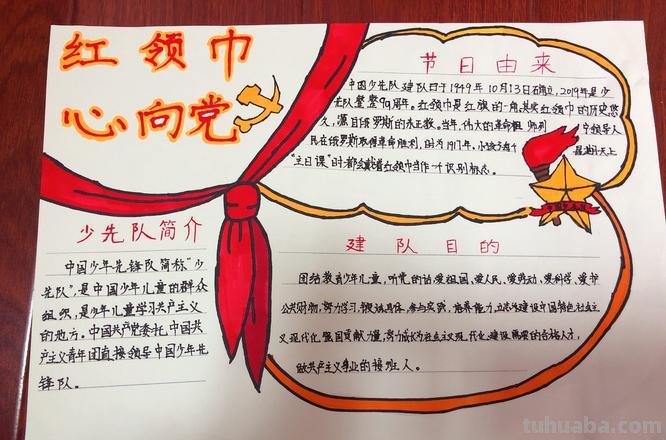 红领巾
心向党
节日由来
中国少年队建队日于1949年10月13日
2019年是少
年队整整70周年。红领巾是红旗的一角,其实红领巾的历史悠
久,源自俄罗斯的东正教。当年,伟大的革命
领导人
在俄罗斯取得革命胜利,时为1917年,
"主日课"时都会戴着红领巾当作一个识别标志。
少先队简介
中国少年先锋队简称"少
先队",是中国少年儿童的群众
组织,是少年儿童学习共产主义
的地方。中国共产党委托,中国共
产主义青年团直接领导中国少年先
锋队。
建队目的
团结教育少年儿童,听党的话,爱祖国、爱人民、爱劳动、爱科学、爱护
公共财物,努力学习,锻炼身体,参与实践,培养能力,立志为建设中国特色社会主
义现代化强国贡献力量,努力成长为社会主义现代化建设需要的合格人才,
做共产主义事业的接班人。
tuhuaba.com